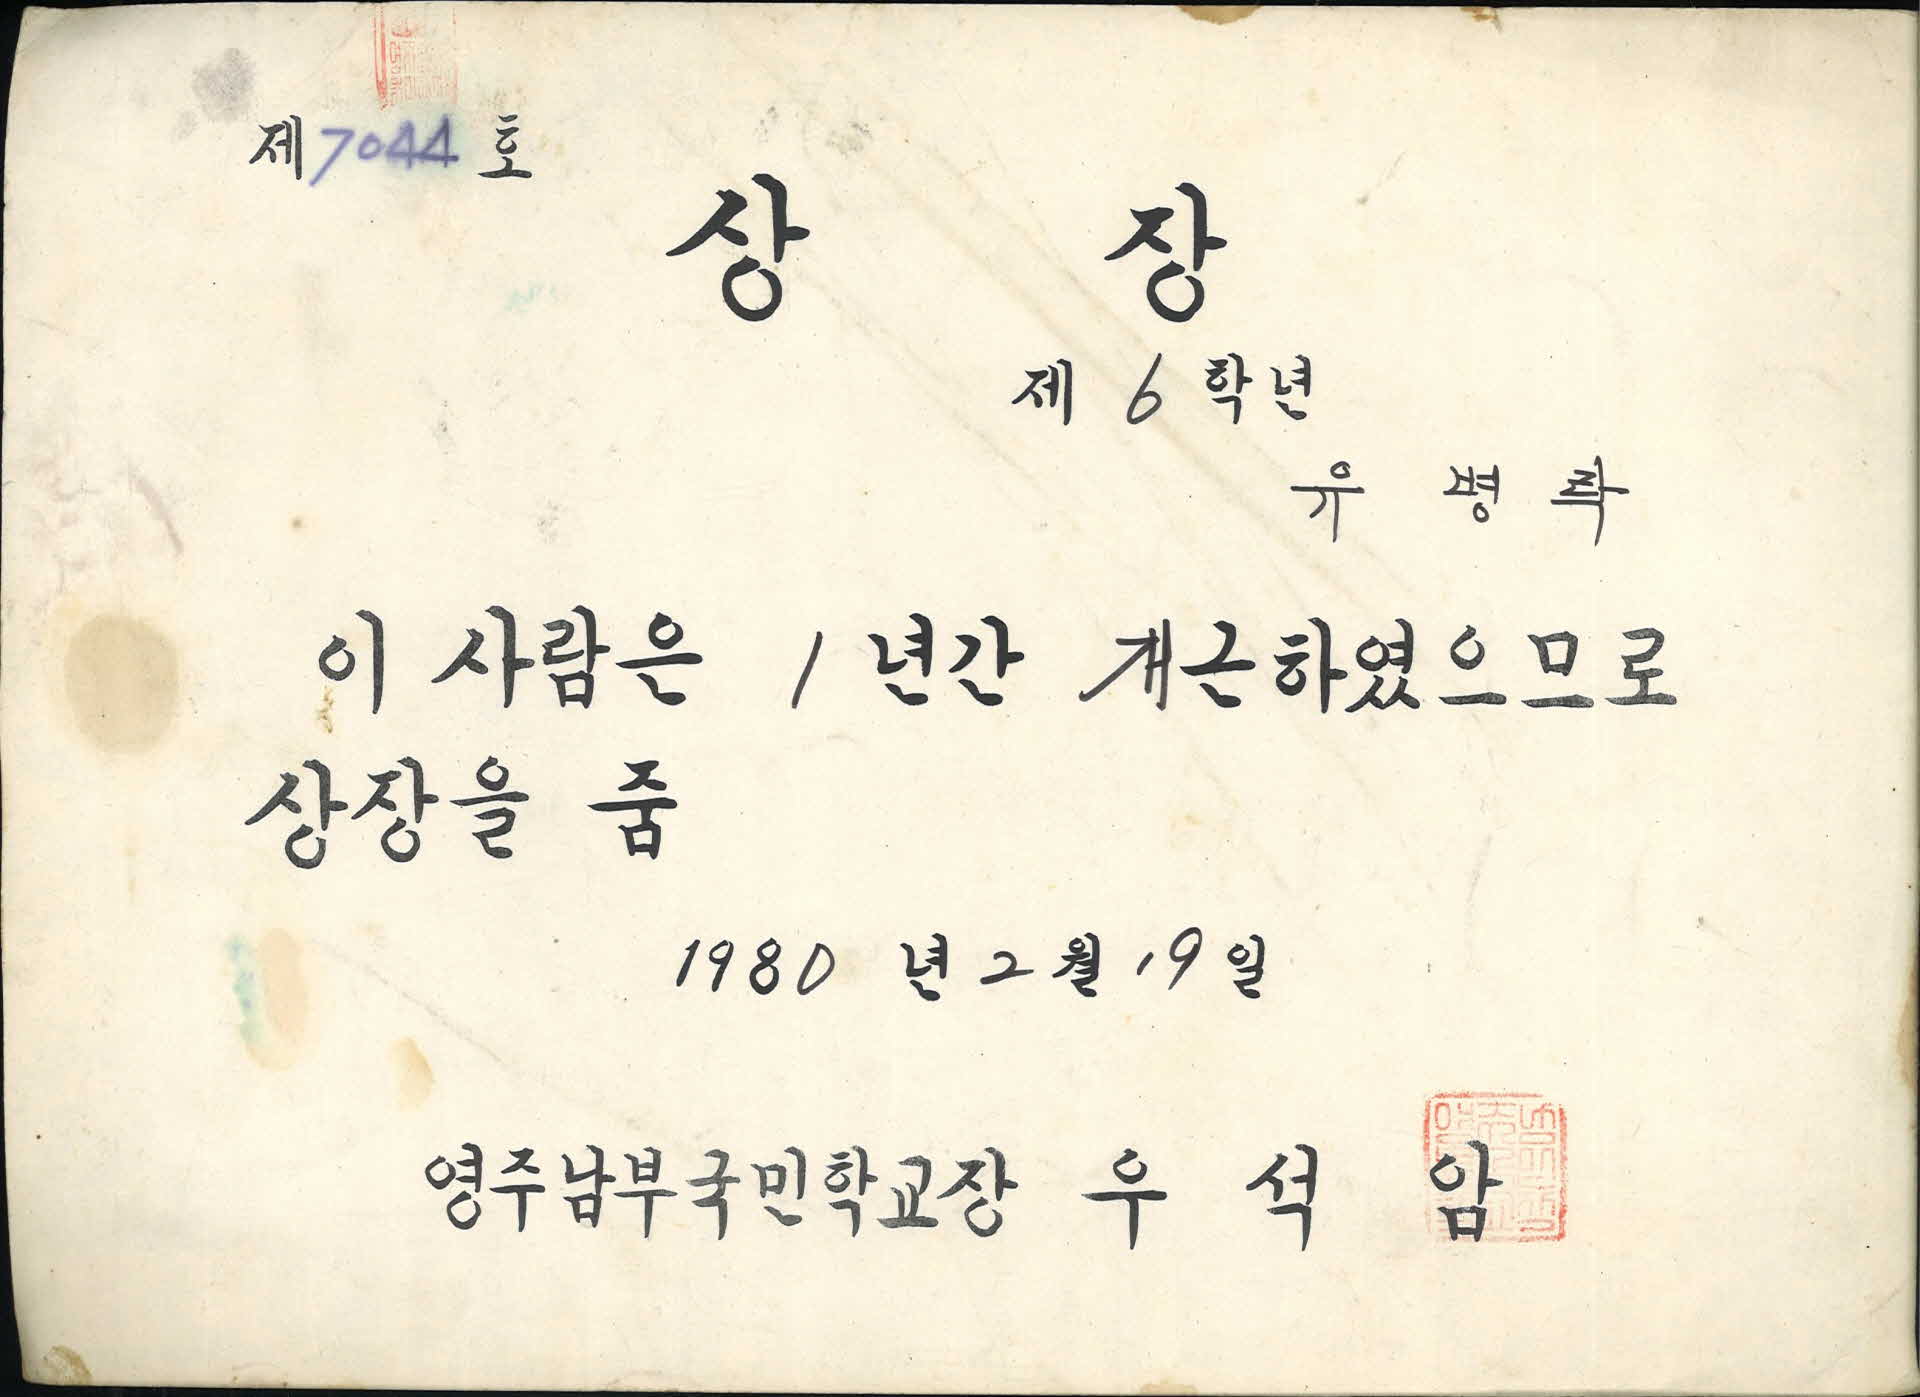 제 7044 호
상 장
제 6 학년
유 병
이 사람은 1 년간 개근하였으므로
상장을 줌
1980 년 2 월 19 일
영주남부국민학교장 우 석 암